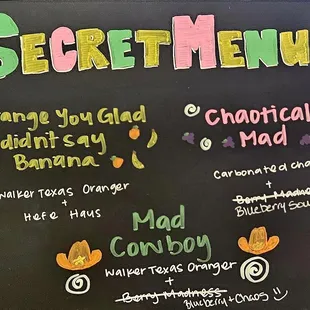 SECRET MENU
ange You Glad
didn't say
Banana
Walker Texas Oranger
+
Hefe Haus
Chaotical
Mad
Carbonated Cha
+
Berry Madne
Blueberry Sou
Mad
Cowboy
Walker Texas Oranger
+
Berry Madness
Blueberry + Chaos